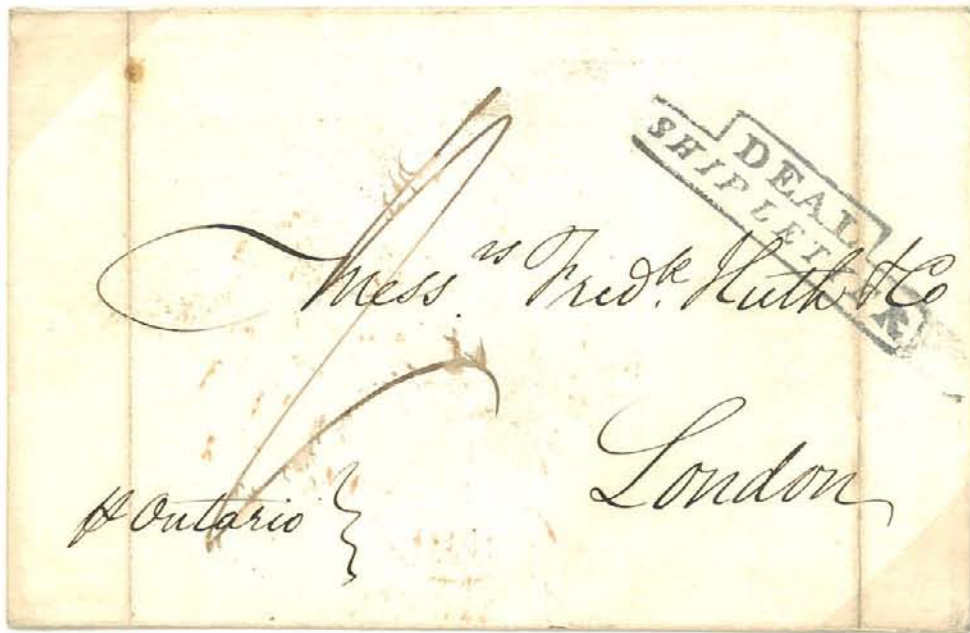 DEAL
SHIP LETTER
Mess.rs Fred.k Huth & Co
London
p Ontario